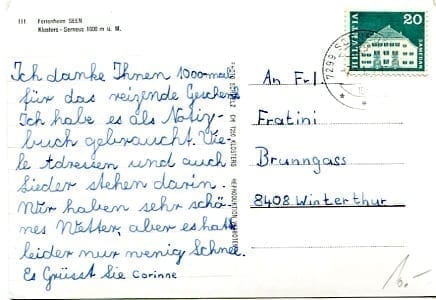 111 Ferienheim SEEN
Klosters - Serneus 1000 m ü. M.
HELVETIA 20
SAMEDAN
7299
Ich danke Ihnen 1000-mal
für das reizende Geschenk.
Ich habe es als Notiz-
buch gebraucht. Vie-
le Adressen und auch
Lieder stehen darin.
Wir haben sehr schö-
nes Wetter, aber es hat
leider nur wenig Schnee.
Es Grüsst Sie Corinne
KLOSTERS
An Frl.
Fratini
Brunngass
8408 Winterthur